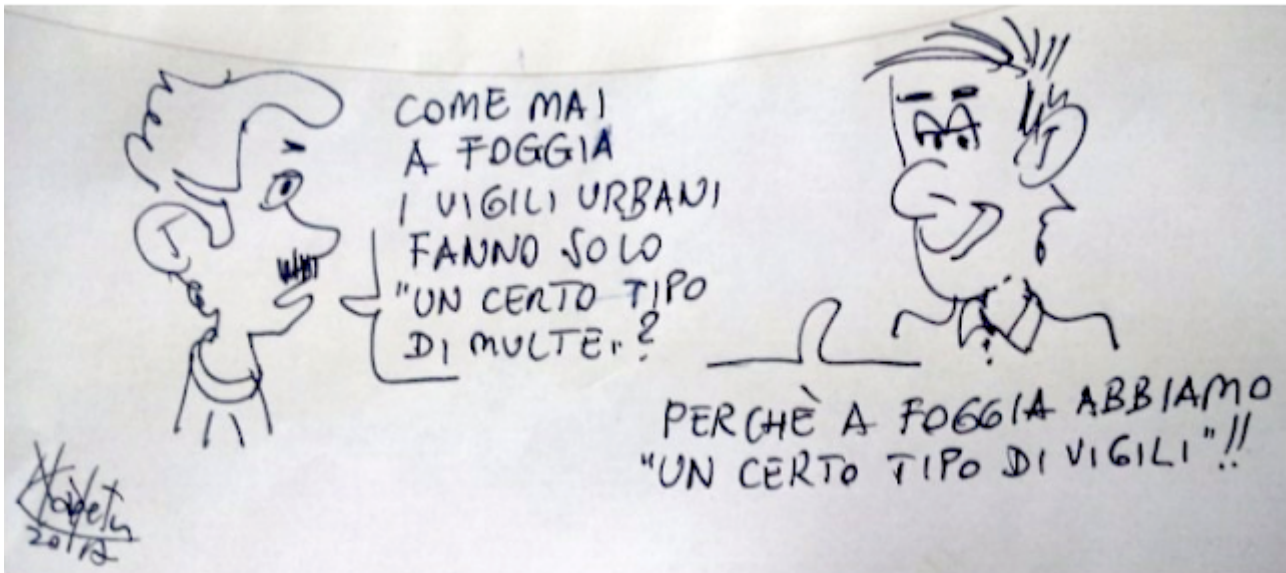 COME MAI
A FOGGIA
I VIGILI URBANI
FANNO SOLO
"UN CERTO TIPO
DI MULTE"?
PERCHÈ A FOGGIA ABBIAMO
"UN CERTO TIPO DI VIGILI"!!